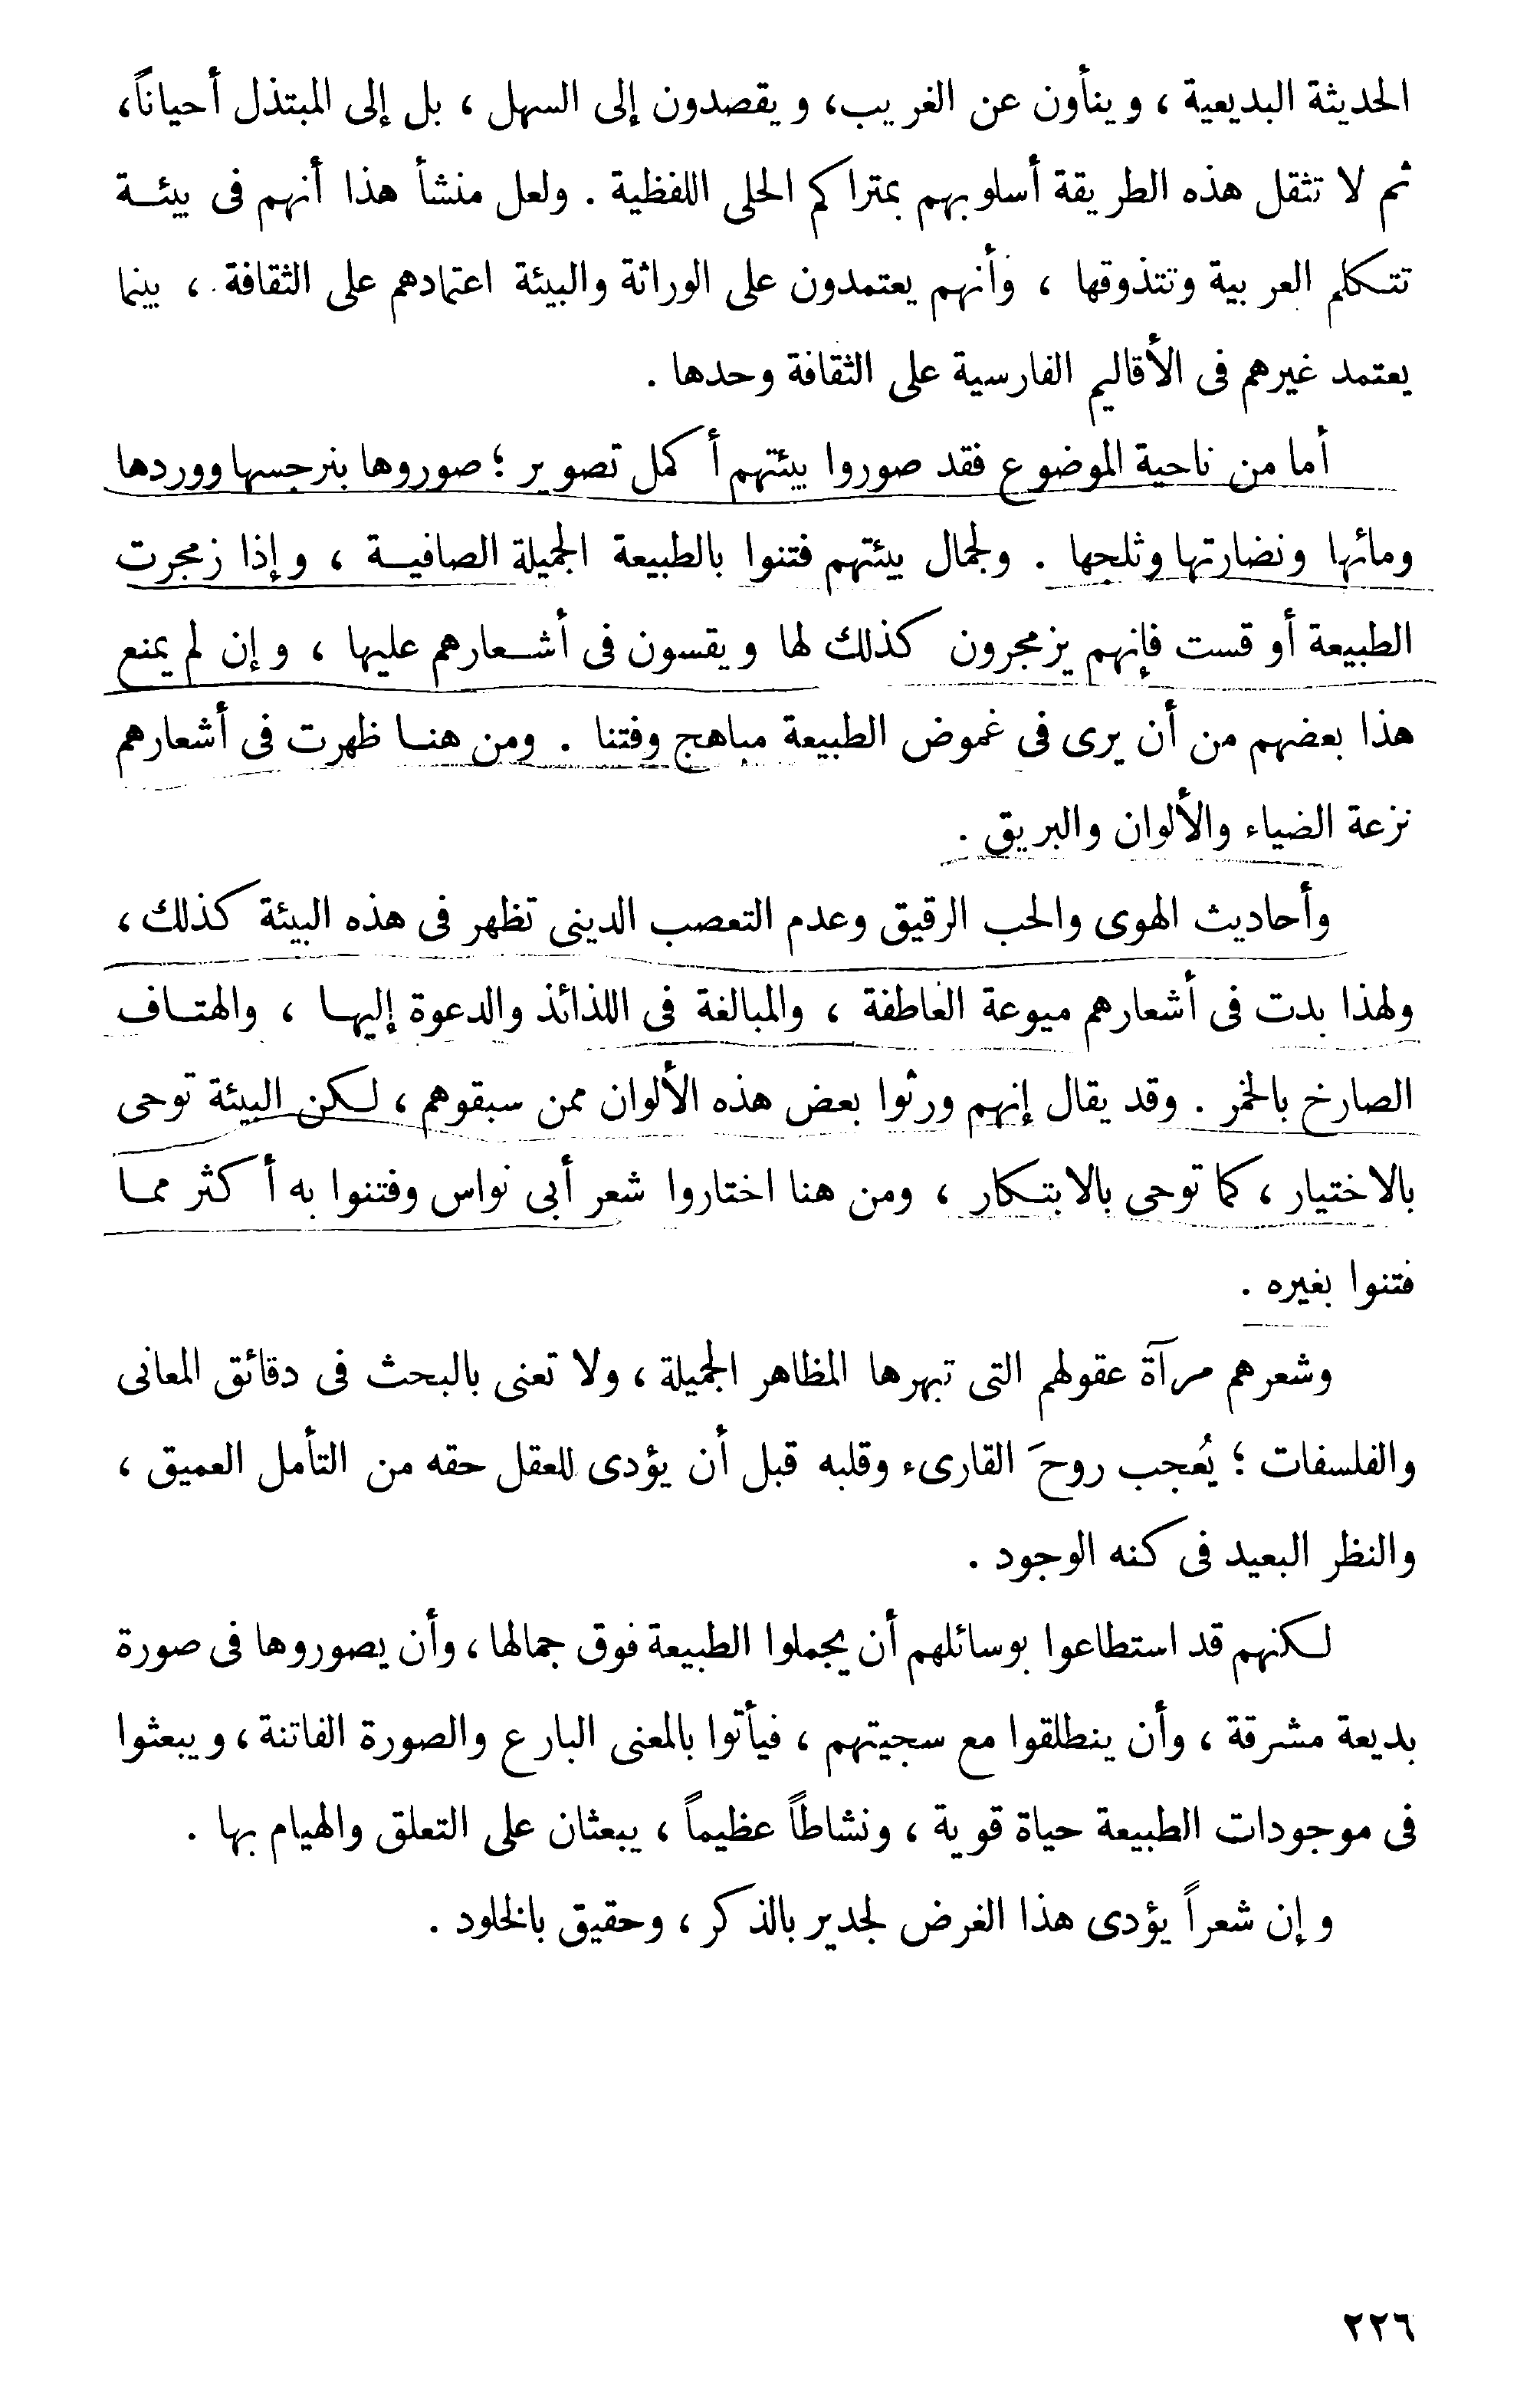 الحديثة البديعية ، وينأون عن الغريب، ويقصدون إلى السهل ، بل إلى المبتذل أحياناً،
ثم لا تثقل هذه الطريقة أسلوبهم بمتراكم الحلى اللفظية . ولعل منشأ هذا أنهم فى بيئة
تتكلم العربية وتتذوقها ، وأنهم يعتمدون على الوراثة والبيئة اعتمادهم على الثقافة ، بينما
يعتمد غيرهم فى الأقاليم الفارسية على الثقافة وحدها .
أما من ناحية الموضوع فقد صوروا بيئتهم أكمل تصوير ؛ صوروها بنرجسها ووردها
ومائها ونضارتها وثلجها . ولجمال بيئتهم فتنوا بالطبيعة الجميلة الصافية ، وإذا زمجرت
الطبيعة أو قست فإنهم يزمجرون كذلك لها ويقسون فى أشعارهم عليها ، وإن لم يمنع
هذا بعضهم من أن يرى فى غموض الطبيعة مباهج وفتنا . ومن هنا ظهرت فى أشعارهم
نزعة الضياء والألوان والبريق .
وأحاديث الهوى والحب الرقيق وعدم التعصب الدينى تظهر فى هذه البيئة كذلك ،
ولهذا بدت فى أشعارهم ميوعة العاطفة ، والمبالغة فى اللذائذ والدعوة إليها ، والهتاف
الصارخ بالخمر . وقد يقال إنهم ورثوا بعض هذه الألوان ممن سبقوهم ، لكن البيئة توحى
بالاختيار ، كما توحى بالابتكار ، ومن هنا اختاروا شعر أبى نواس وفتنوا به أكثر مما
فتنوا بغيره .
وشعرهم مرآة عقولهم التى تبهرها المظاهر الجميلة ، ولا تعنى بالبحث فى دقائق المعانى
والفلسفات ؛ يُعجب روحَ القارىء وقلبه قبل أن يؤدى للعقل حقه من التأمل العميق ،
والنظر البعيد فى كنه الوجود .
لكنهم قد استطاعوا بوسائلهم أن يجملوا الطبيعة فوق جمالها ، وأن يصوروها فى صورة
بديعة مشرقة ، وأن ينطلقوا مع سجيتهم ، فيأتوا بالمعنى البارع والصورة الفاتنة ، ويبعثوا
فى موجودات الطبيعة حياة قوية ، ونشاطاً عظيماً ، يبعثان على التعلق والهيام بها .
وإن شعراً يؤدى هذا الغرض لجدير بالذكر ، وحقيق بالخلود .
٢٢٦